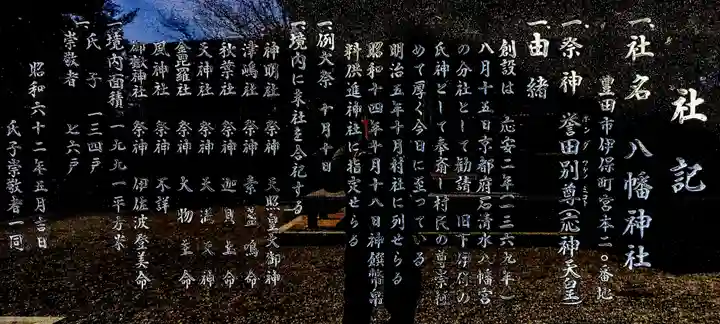 社記
一、社名 八幡神社
豊田市伊保町宮本二〇番地
一、祭神 誉田別尊(応神天皇)
ホンダワケノミコト
一、由緒
創設は 応安二年(一三六九年)
八月十五日京都府石清水八幡宮
の分社として勧請 旧下伊保の
氏神として奉斎し村民の尊崇極
めて厚く今日に至っている
明治五年十月村社に列せらる
昭和十四年十月十八日神饌幣帛
料供進神社に指定せらる
一、例大祭 十月十日
一、境内に末社を合祀する
神明社 祭神 天照皇大御神
津嶋社 祭神 素盞嗚命
秋葉社 祭神 迦具土命
天神社 祭神 天満天神
金毘羅社 祭神 大物主命
風神社 祭神 不詳
御嶽神社 祭神 伊佐波登美命
一、境内面積 一九九一平方米
一、氏子 一三四戸
一、崇敬者 七六戸
昭和六十二年五月吉日
氏子崇敬者一同